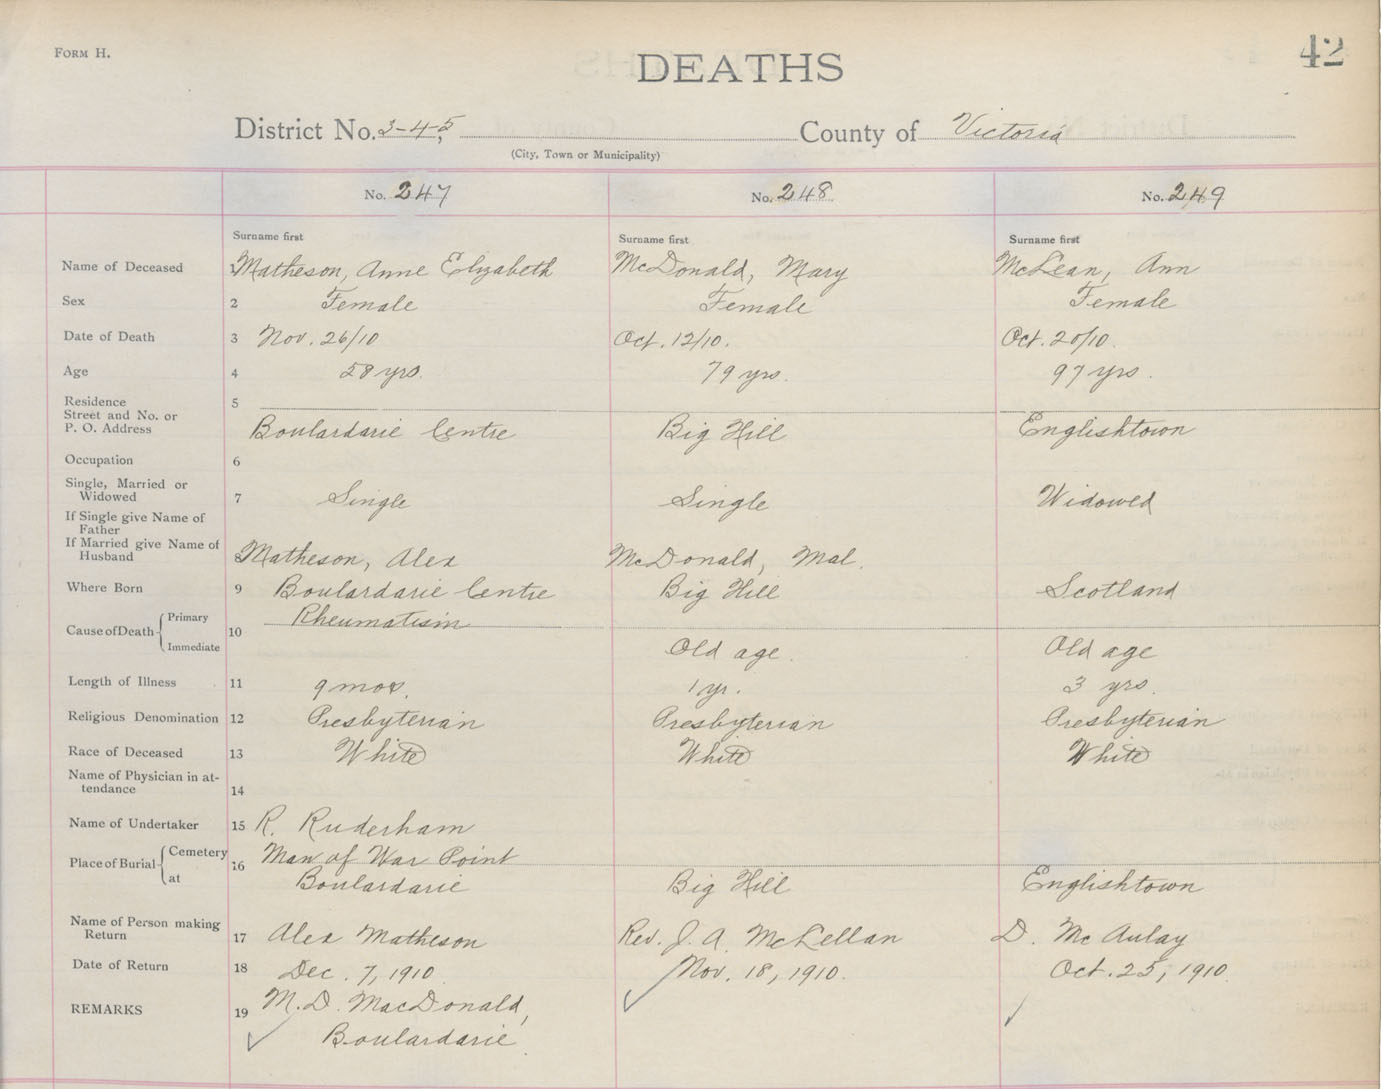 FORM H.
42
DEATHS
District No. 3-4-5, County of Victoria
(City, Town or Municipality)
No. 247 No. 248 No. 249
Surname first Surname first Surname first
Name of Deceased 1 Matheson, Anne Elizabeth McDonald, Mary McLean, Ann
Sex 2 Female Female Female
Date of Death 3 Nov. 26/10 Oct. 12/10. Oct. 20/10.
Age 4 28 yrs. 79 yrs. 97 yrs.
Residence 5
Street and No. or
P. O. Address Boulardarie Centre Big Hill Englishtown
Occupation 6
Single, Married or
Widowed 7 Single Single Widowed
If Single give Name of
Father
If Married give Name of
Husband 8 Matheson, Alex McDonald, Mal.
Where Born 9 Boulardarie Centre Big Hill Scotland
Cause of Death Primary Rheumatism
10
Immediate Old age. Old age
Length of Illness 11 9 mos. 1 yr. 3 yrs.
Religious Denomination 12 Presbyterian Presbyterian Presbyterian
Race of Deceased 13 White White White
Name of Physician in at-
tendance 14
Name of Undertaker 15 R. Ruderham
Place of Burial Cemetery 16 Man of War Point
at Boulardarie Big Hill Englishtown
Name of Person making
Return 17 Alex Matheson Rev. J. A. McLellan D. McAulay
Date of Return 18 Dec. 7, 1910. Nov. 18, 1910. Oct. 25, 1910.
REMARKS 19 M. D. MacDonald,
Boulardarie